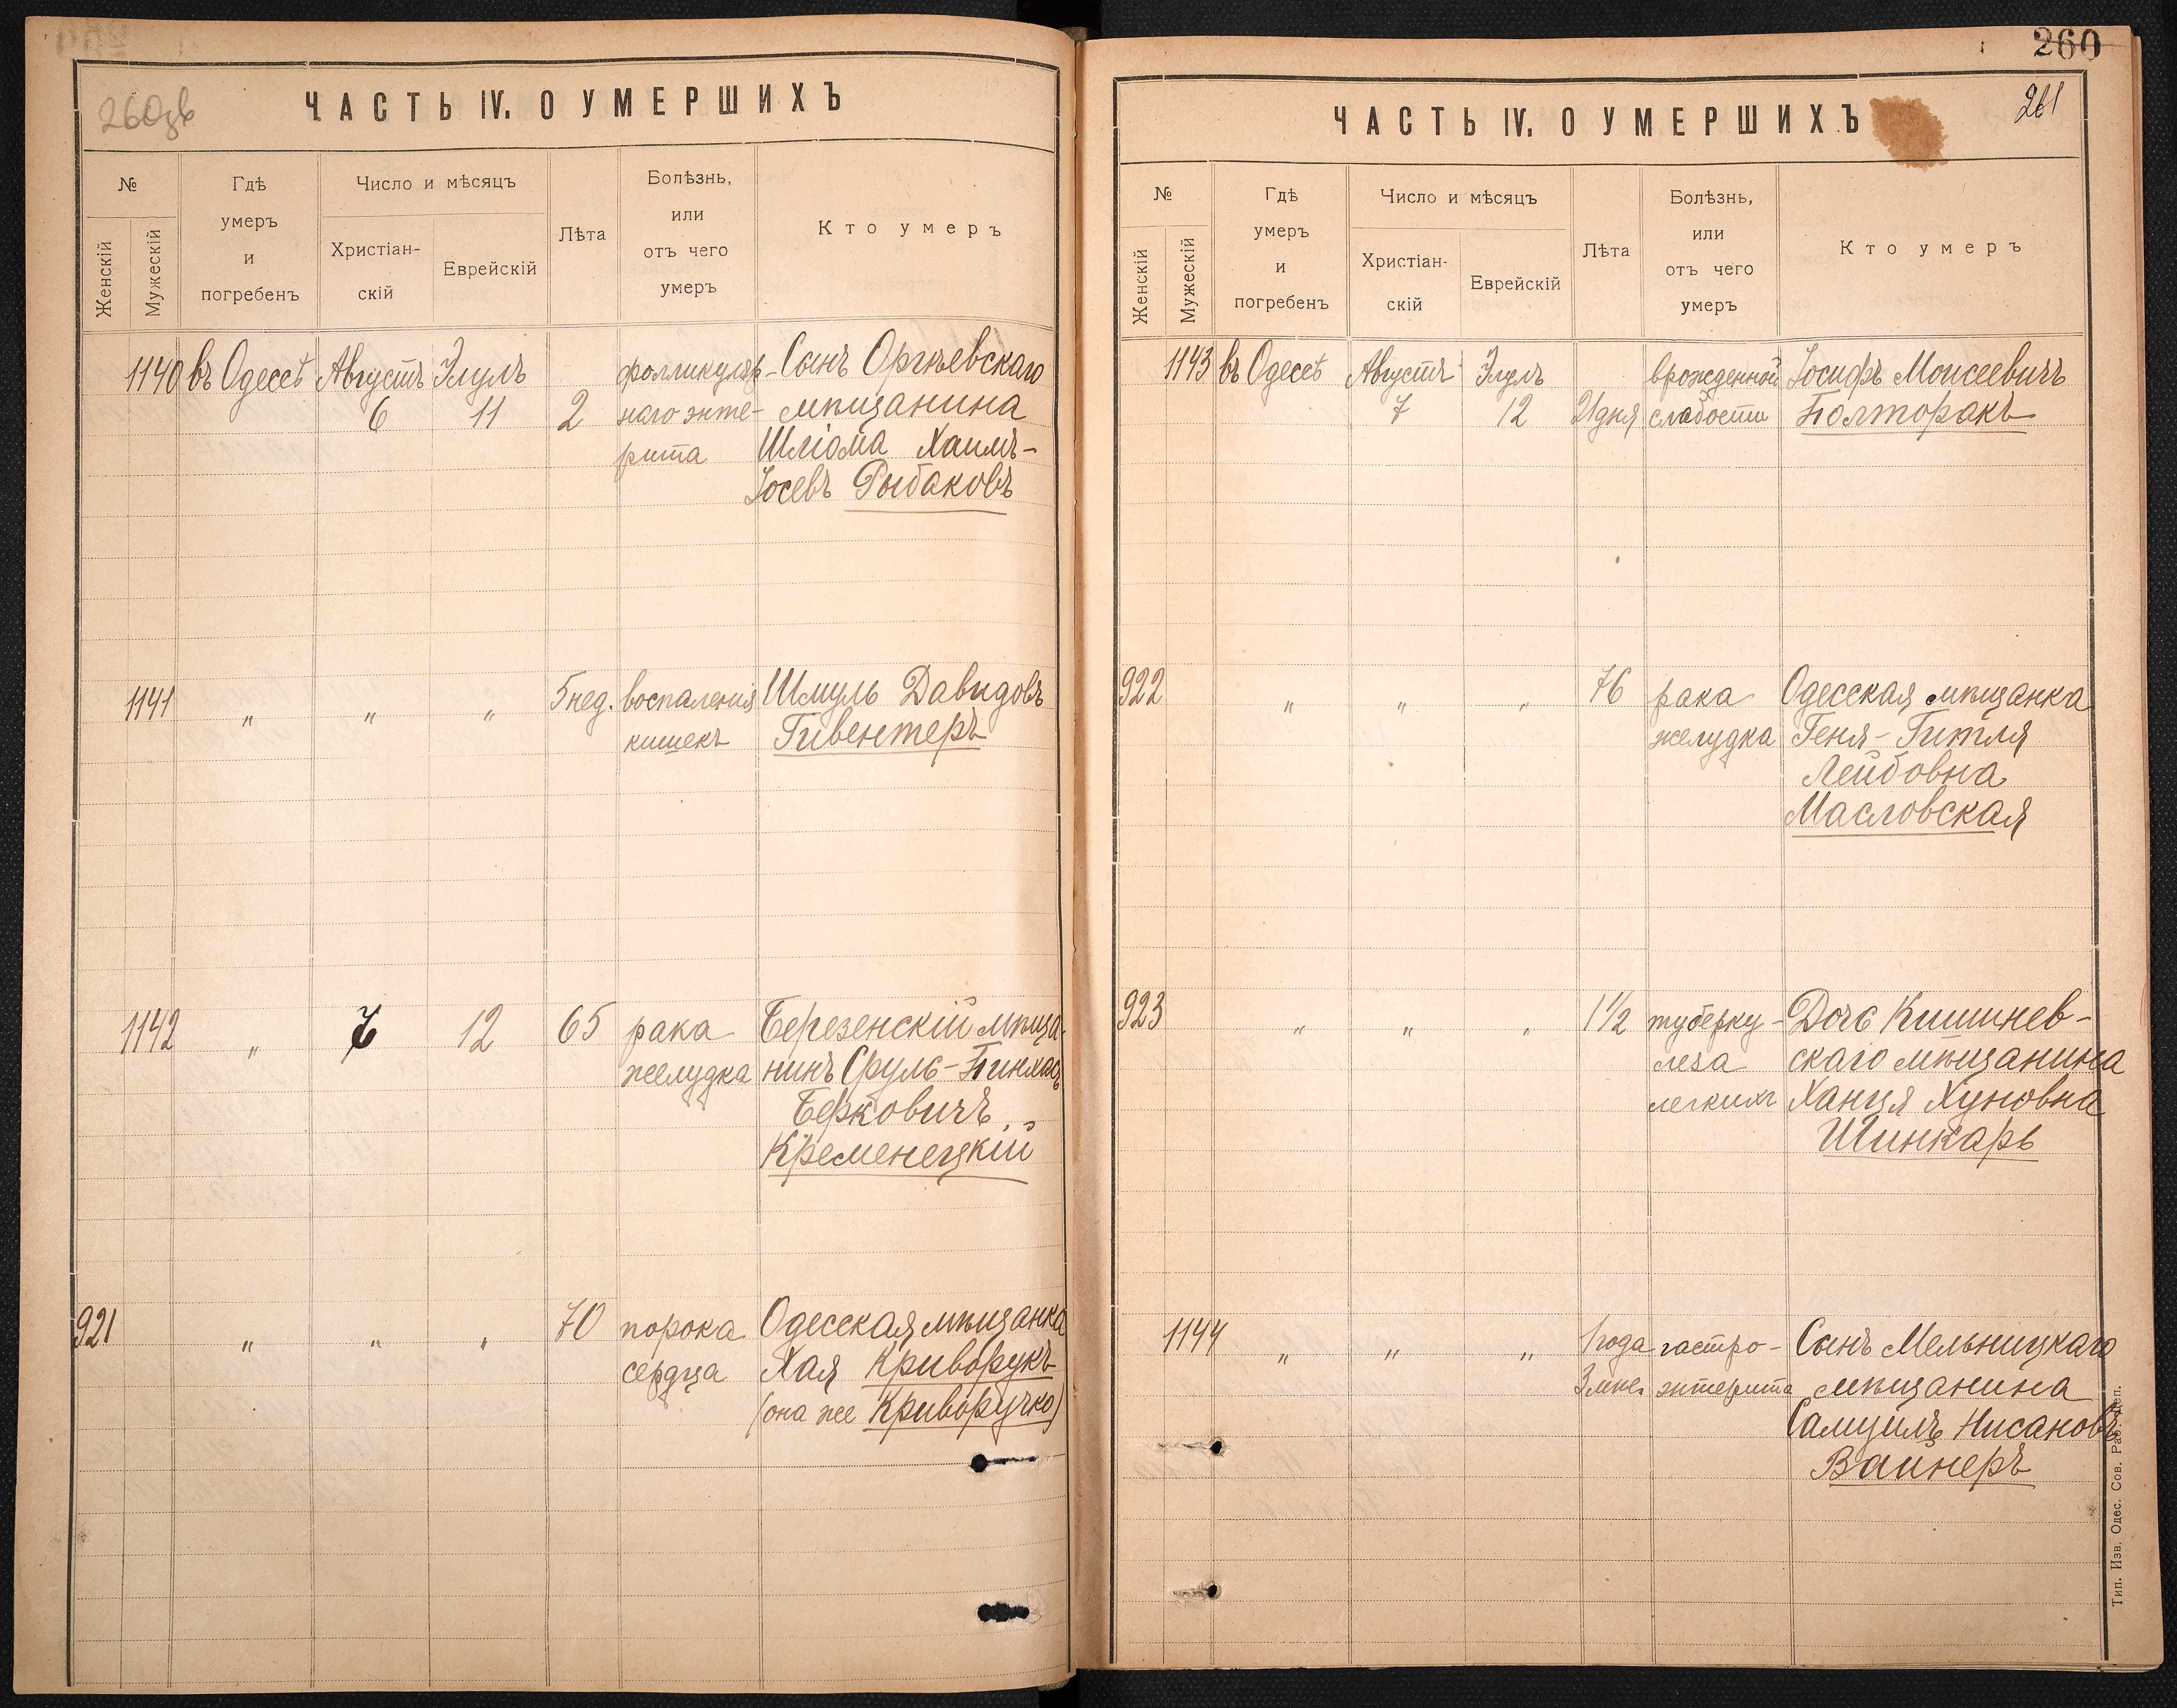 260зв
ЧАСТЬ IV. О УМЕРШИХЪ
№
Женскій
Мужескій
Гдѣ
умеръ
и
погребенъ
Число и мѣсяцъ
Христіан-
скій
Еврейскій
Лѣта
Болѣзнь,
или
отъ чего
умеръ
Кто умеръ
1140 въ Одессѣ Августъ Элулъ фолликуляр- Сынъ Оргѣевскаго
6 11 2 наго энте- мѣщанина
рита Шліома Хаимъ-
Іосевъ Рыбаковъ
1141 " " " 5 нед. воспаленія Шмуль Давидовъ
кишекъ Гивентеръ
1142 " 7 12 65 рака Березенскій мѣща-
желудка нинъ Сруль-Пинхасъ
Берковичъ
Кременецкій
921 " " " 70 порока Одесская мѣщанка
сердца Хая Криворукъ
(она же Криворучко)
260
261
ЧАСТЬ IV. О УМЕРШИХЪ
№
Женскій
Мужескій
Гдѣ
умеръ
и
погребенъ
Число и мѣсяцъ
Христіан-
скій
Еврейскій
Лѣта
Болѣзнь,
или
отъ чего
умеръ
Кто умеръ
1143 въ Одессѣ Августъ Элулъ врожденной Іосифъ Моисеевичъ
7 12 21 дня слабости Полторакъ
922 " " " 76 рака Одесская мѣщанка
желудка Геня-Гитля
Лейбовна
Масловская
923 " " " 1 1/2 туберку- Дочь Кишинев-
леза скаго мѣщанина
легкихъ Ханця Хуновна
Шинкарь
1144 " " " 1 года гастро- Сынъ Мельницкаго
3 мѣс. энтерита мѣщанина
Самуилъ Нисановъ
Вайнеръ
Тип. Изв. Одес. Сов. Раб. Деп.